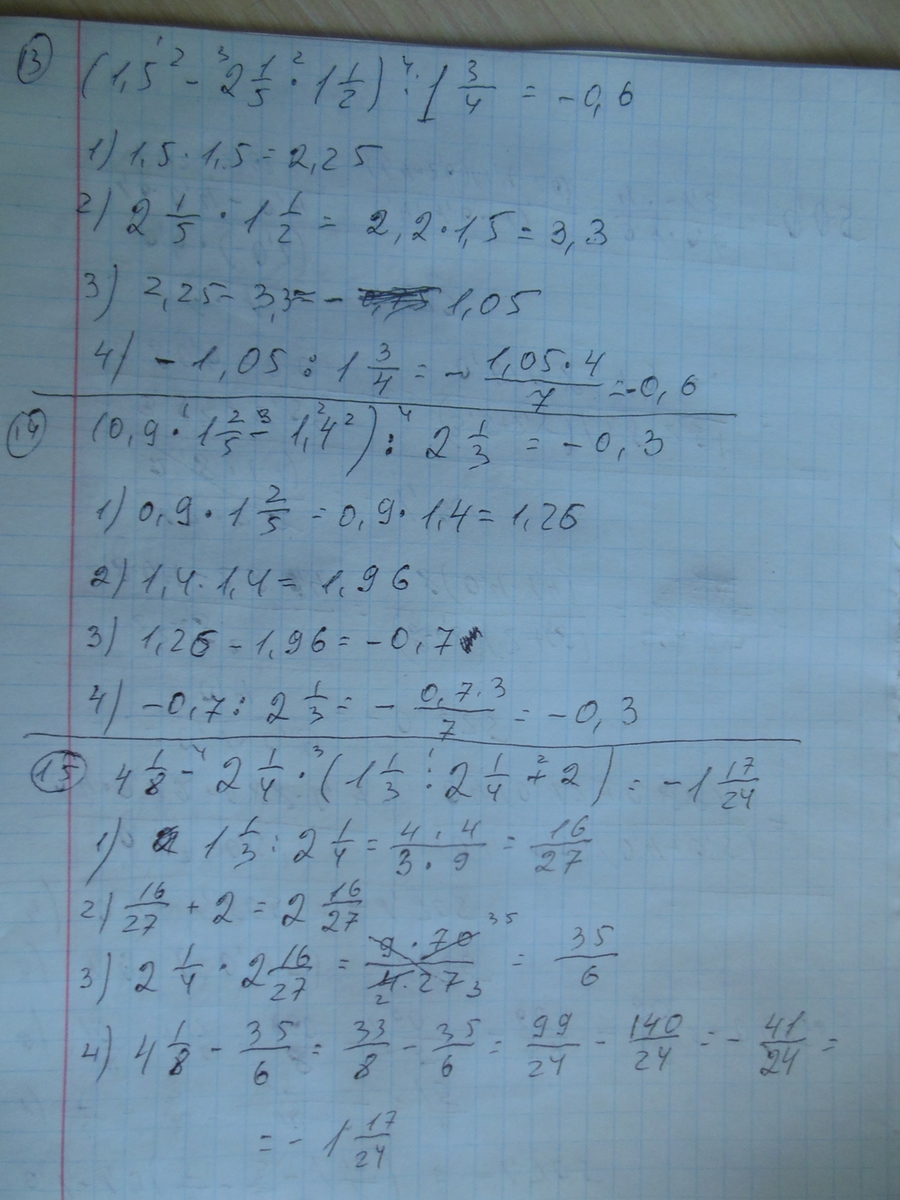 13 (1,5² - 2 1/5 · 1 1/2) : 1 3/4 = -0,6
1) 1,5 · 1,5 = 2,25
2) 2 1/5 · 1 1/2 = 2,2 · 1,5 = 3,3
3) 2,25 - 3,3 = - 1,05
4) -1,05 : 1 3/4 = - 1,05·4/7 = -0,6
14 (0,9 · 1 2/5 - 1,4²) : 2 1/3 = -0,3
1) 0,9 · 1 2/5 = 0,9 · 1,4 = 1,26
2) 1,4 · 1,4 = 1,96
3) 1,26 - 1,96 = -0,7
4) -0,7 : 2 1/3 = - 0,7·3/7 = -0,3
15 4 1/8 - 2 1/4 · (1 1/3 : 2 1/4 + 2) = -1 17/24
1) 1 1/3 : 2 1/4 = 4·4/3·9 = 16/27
2) 16/27 + 2 = 2 16/27
3) 2 1/4 · 2 16/27 = 9·70/4·27 = 35/6
4) 4 1/8 - 35/6 = 33/8 - 35/6 = 99/24 - 140/24 = - 41/24 =
= - 1 17/24